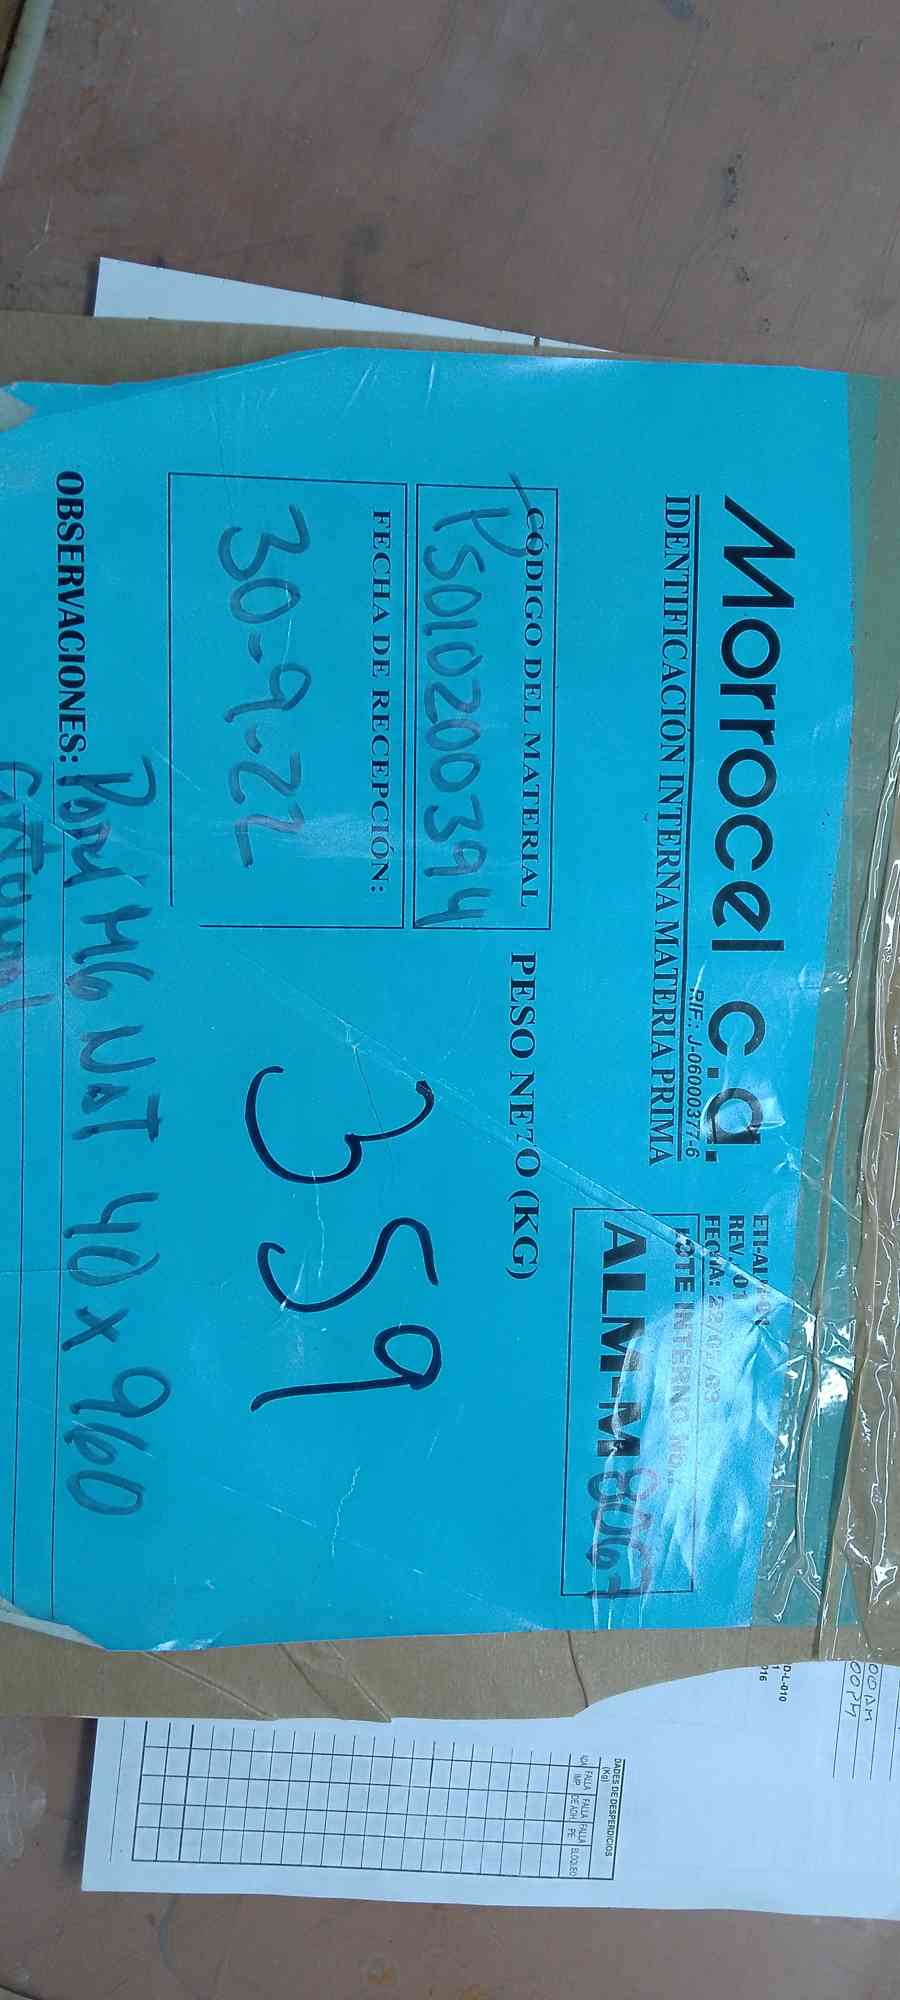 Morrocel c.a.
RIF.: J-06000377-6
IDENTIFICACIÓN INTERNA MATERIA PRIMA
REV. 01
LOTE INTERNO No.
ALM-M8067
CÓDIGO DEL MATERIAL
PS010200394
PESO NETO (KG)
359
FECHA DE RECEPCIÓN:
30-9-22
OBSERVACIONES: HG NAT 40 x 960
D-L-010
00 AM
00 PM
DADES DE DESPERDICIOS
(Kg)
FALLA IMP
FALLA DE ADH
FALLA PE
BLOQUEO